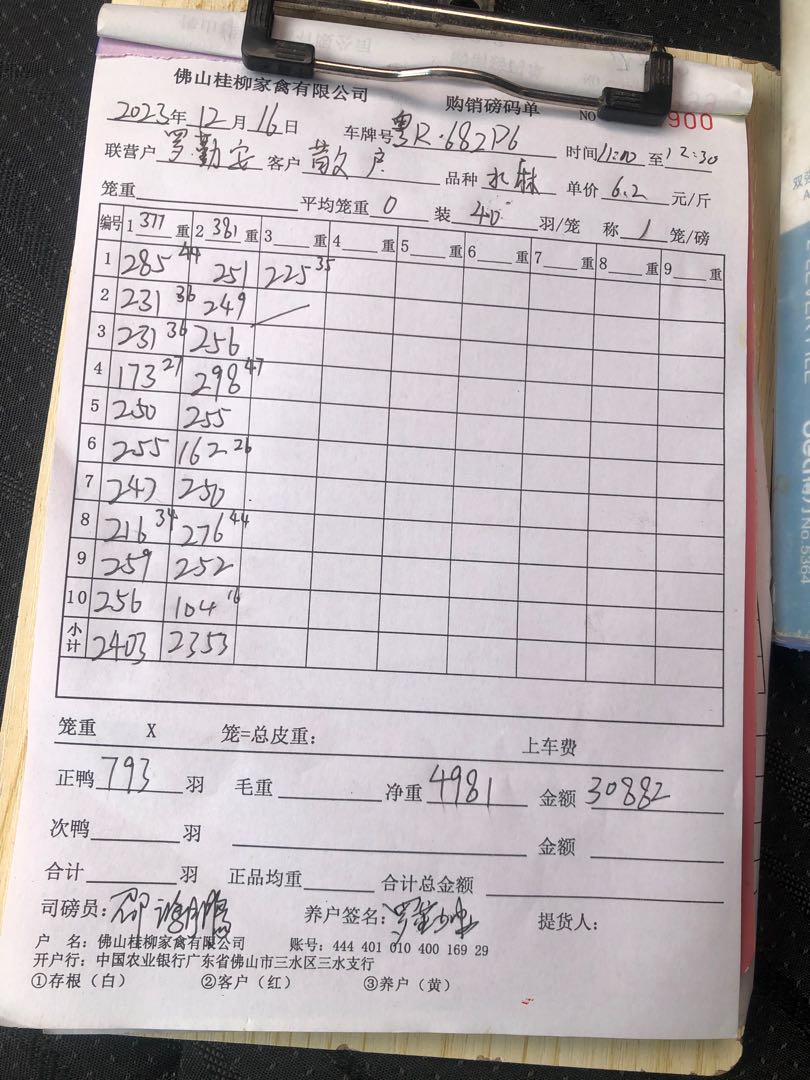 佛山桂柳家禽有限公司 购销磅码单 NO 900
2023年12月16日 车牌号粤R·682D6 时间11:00至12:30
联营户罗勤安 客户散户 品种水麻 单价6.2元/斤
笼重 平均笼重0 装40羽/笼 称1笼/磅
编号 1 377重 2 381重 3 重 4 重 5 重 6 重 7 重 8 重 9 重
1 285 44 251 225 35
2 231 36 249
3 231 36 256
4 173 27 298 47
5 250 255
6 255 162 26
7 247 250
8 216 34 276 44
9 259 252
10 256 104 16
小计 2403 2353
笼重 X 笼=总皮重: 上车费
正鸭793羽 毛重 净重4981 金额30882
次鸭 羽 金额
合计 羽 正品均重 合计总金额
司磅员: 养户签名: 提货人:
户 名: 佛山桂柳家禽有限公司 账号: 444 401 010 400 169 29
开户行: 中国农业银行广东省佛山市三水区三水支行
①存根（白） ②客户（红） ③养户（黄）